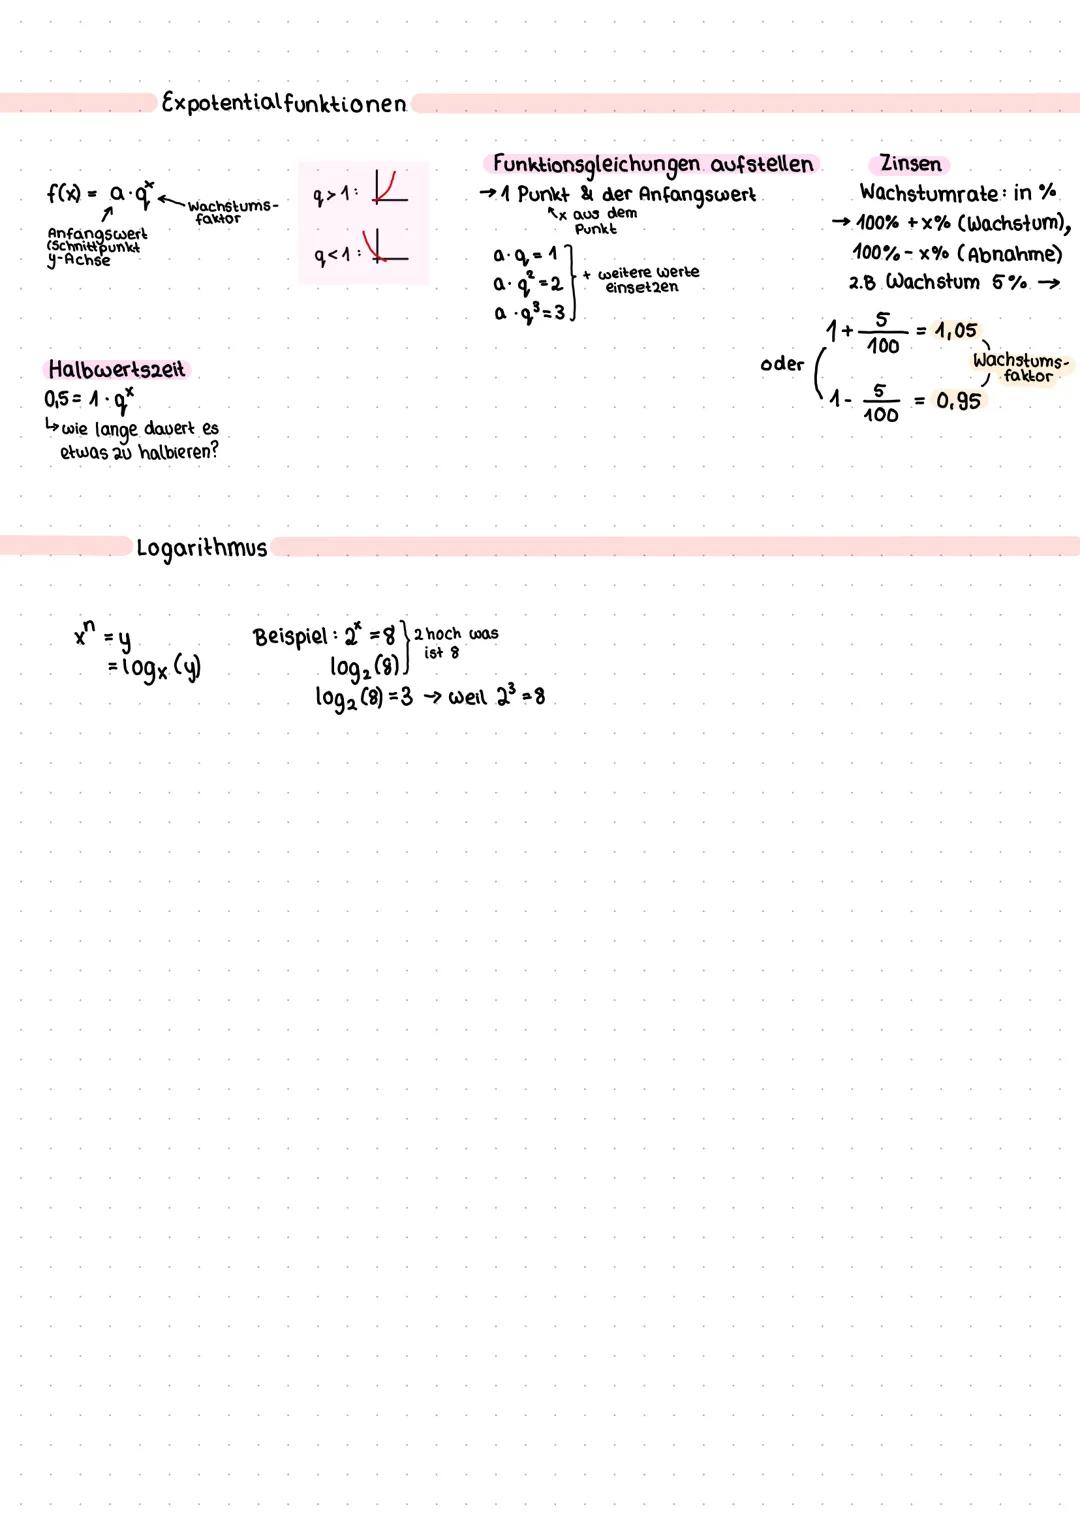 Expotentialfunktionen
f(x) = a · q^x ← Wachstums-
faktor
Anfangswert
(Schnittpunkt
y-Achse
q > 1 :
q < 1 :
Funktionsgleichungen aufstellen
→ 1 Punkt & der Anfangswert
↖ x aus dem
Punkt
a · q = 1
a · q² = 2
a · q³ = 3
+ weitere Werte
einsetzen
Zinsen
Wachstumrate : in %
→ 100% + x% (Wachstum),
100% - x% (Abnahme)
z.B. Wachstum 5% →
1 + 5/100 = 1,05
oder
1 - 5/100 = 0,95
Wachstums-
faktor
Halbwertszeit
0,5 = 1 · q^x
↳ wie lange dauert es
etwas zu halbieren?
Logarithmus
x^n = y
= log_x (y)
Beispiel : 2^x = 8
log₂ (8)
2 hoch was
ist 8
log₂ (8) = 3 → weil 2³ = 8